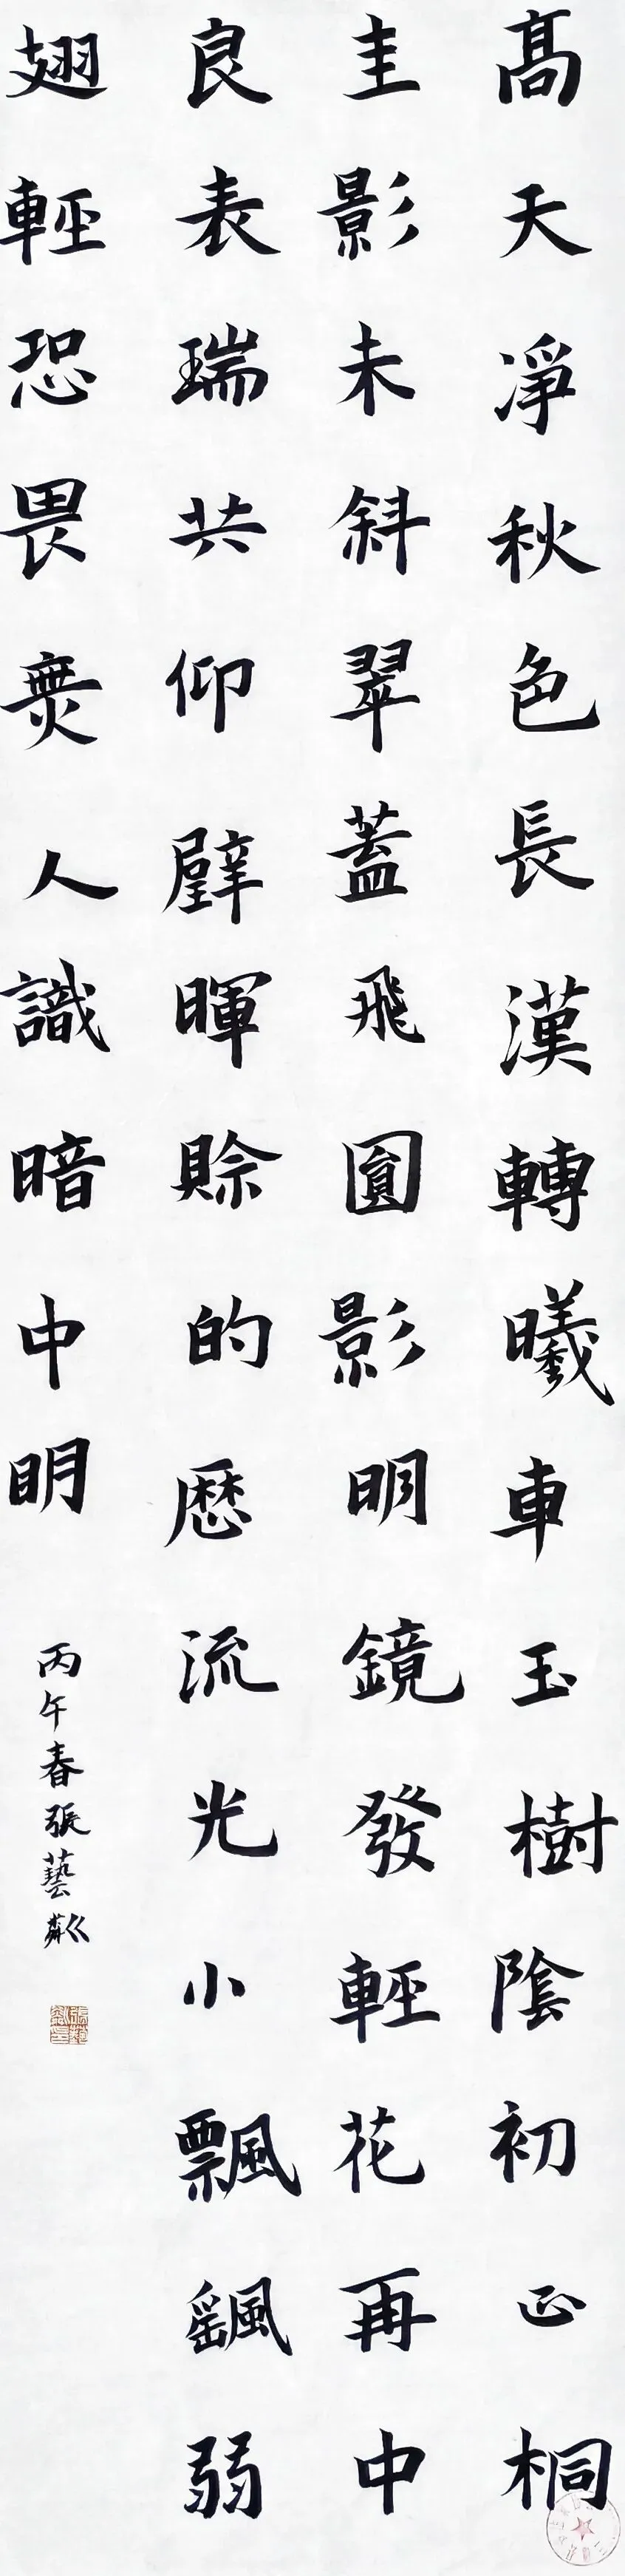 高天淨秋色長漢轉曦車玉樹陰初正桐
圭影未斜翠蓋飛圓影明鏡發輕花再中
良表瑞共仰璧暉賒的歷流光小飄颻弱
翅輕恐畏無人識暗中明
丙午春張藝